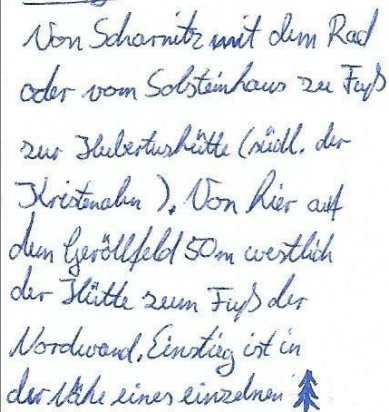 Von Scharnitz mit dem Rad
oder vom Solsteinhaus zu Fuß
zur Hubertushütte (südl. der
Kristenalm). Von hier auf
dem Geröllfeld 50m westlich
der Hütte zum Fuß der
Nordwand. Einstieg ist in
der Nähe eines einzelnen